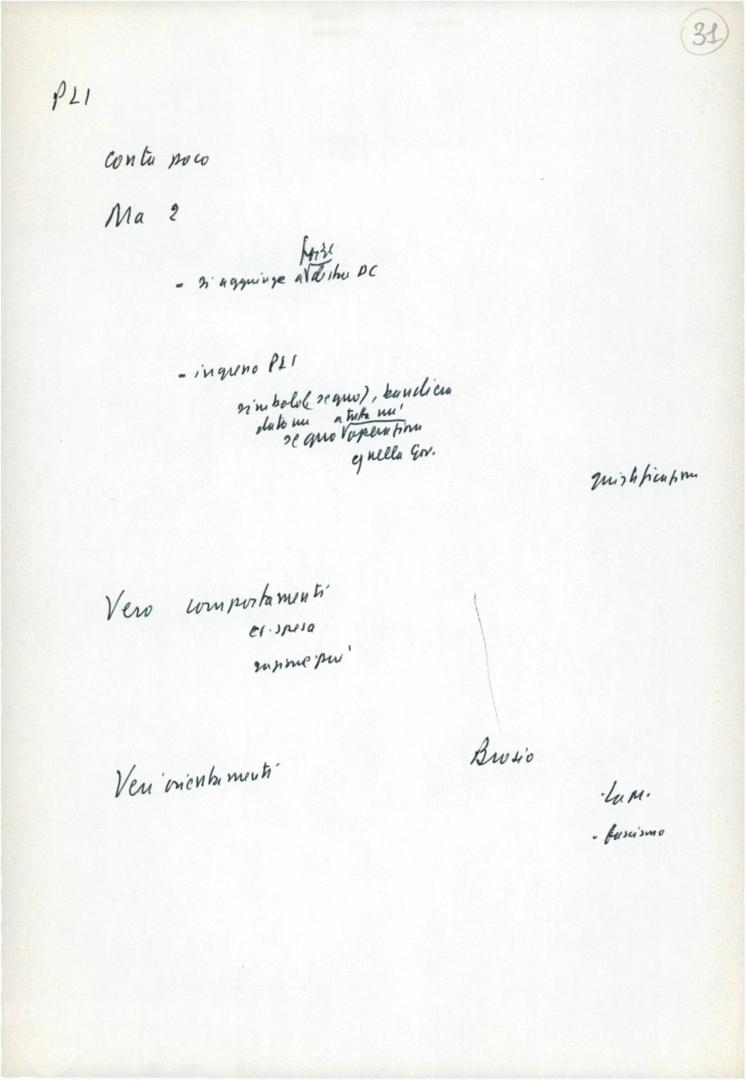 31
PLI
conta poco
Ma 2
forze
- si aggiunge a destra DC
- ingresso PLI
simbolo (segno), bandiera
dato un a tutta un'
segno operazione
quella Gov.
giustificazione
Vero comportamenti
es. spesa
Brosio
Veri orientamenti
- La M.
- fascismo